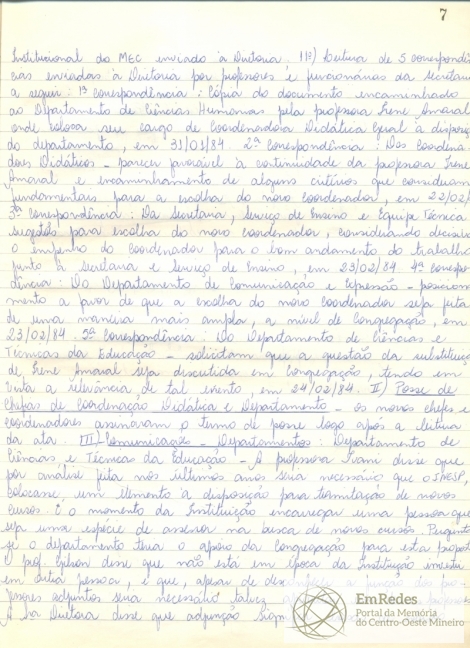 7
Institucional do MEC enviado à Diretoria. 11º) Leitura de 5 correspondên
cias enviadas à Diretoria por professores e funcionárias da Secretaria
a seguir: 1ª correspondência: Cópia do documento encaminhado
ao Departamento de Ciências Humanas pela professora Irene Amaral
onde coloca seu cargo de Coordenadora Didática Geral à disposi
do departamento, em 31/01/84. 2ª correspondência: Dos Coordena
dores Didáticos - parecer favorável à continuidade da professora Irene
Amaral e encaminhamento de alguns critérios que consideram
fundamentais para a escolha do novo coordenador, em 22/02/
3ª correspondência: Da Secretaria, Serviço de Ensino e Equipe Técnica
sugestão para escolha do novo coordenador, considerando decisivo
o empenho do coordenador para o bom andamento do trabalho
junto à Secretaria e Serviço de Ensino, em 23/02/84. 4ª correspon
dência: Do Departamento de Comunicação e Expressão - posiciona
mento a favor de que a escolha do novo coordenador seja feita
de uma maneira mais ampla, a nível de Congregação, em
23/02/84. 5ª correspondência: Do Departamento de Ciências e
Técnicas da Educação - solicitam que a questão da substituiç
de Irene Amaral seja discutida em Congregação, tendo em
vista a relevância de tal evento, em 24/02/84. II) Posse de
Chefias de Coordenação Didática e Departamento - os novos chefes e
coordenadores assinaram o termo de posse logo após a leitura
da ata. III) Comunicações - Departamentos: Departamento de
Ciências e Técnicas da Educação - A professora Ivani disse que
por análise feita nos últimos anos seria necessário que o INESP,
colocasse, um elemento a disposição para formulação de novos
cursos. É o momento da Instituição encarregar uma pessoa que
seja uma espécie de assessor na busca de novos cursos. Pergunto
se o departamento teria o apoio da Congregação para esta propost
O prof. Gilson disse que não está em época da Instituição investir
em outra pessoa, e que, apesar de desconhecer a função dos pro-
fessores adjuntos seria necessário talvez
A Sra Diretora disse que adjunção
EmRedes
Portal da Memória
do Centro-Oeste Mineiro